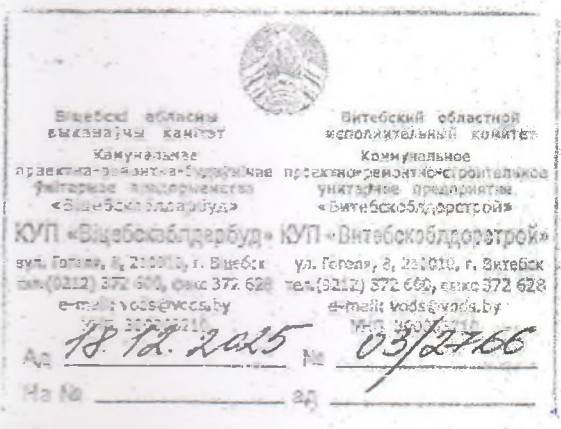 Віцебскі абласны
выканаўчы камітэт
Камунальнае
праектна-рамонтна-будаўнічае
ўнітарнае прадпрыемства
«Віцебскаблдарбуд»
КУП «Віцебскаблдарбуд»
вул. Гоголя, 8, 210010, г. Віцебск
тел.(0212) 372 600, факс 372 628
e-mail: vods@vods.by
Витебский областной
исполнительный комитет
Коммунальное
проектно-ремонтно-строительное
унитарное предприятие
«Витебскоблдорстрой»
КУП «Витебскоблдорстрой»
ул. Гоголя, 8, 210010, г. Витебск
тел.(0212) 372 600, факс 372 628
e-mail: vods@vods.by
Ад 18.12.2025 № 03/2766
На № ад